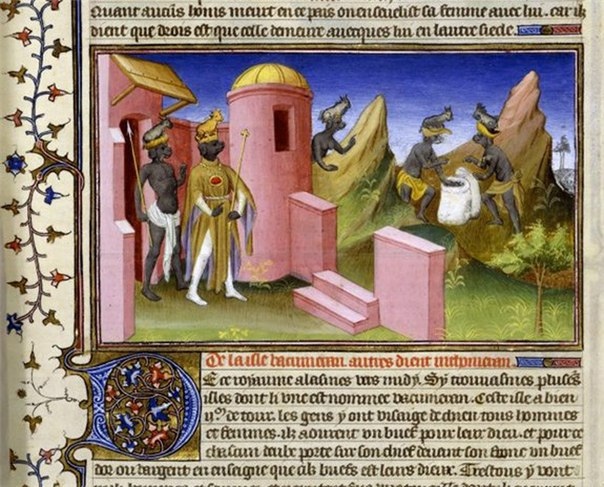 Quant aucũs homs meurt en ce pais on enseuelist sa femme auec lui. car ilz
dient que drois est que celle demeure auecques lui en lautre siecle.
De la isle vacumeran. autres dient
De ce royaume alasmes vers midy. Sy trouuasmes pluse's
isles dont li vne est nommee vacumeran. Ceste isle a bien
de tour. les gens y ont visaige de chien tous hommes
et femmes. ilz aourent vn buef pour leur dieu. et pour ce
chascun deulx porte sur son chief deuant son front vn buef
dor ou dargent en enseigne que cilz buefs est leurs dieux. Trestous y vont